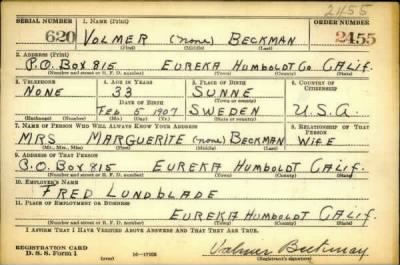 2455
SERIAL NUMBER 1. NAME (Print) ORDER NUMBER
620 VOLMER (none) BECKMAN 2455
(First) (Middle) (Last)
2. ADDRESS (Print)
P.O. BOX 815 EUREKA HUMBOLDT CO CALIF.
(Number and street or R. F. D. number) (Town) (County) (State)
3. TELEPHONE 4. AGE IN YEARS 5. PLACE OF BIRTH 6. COUNTRY OF CITIZENSHIP
NONE 33 SUNNE
DATE OF BIRTH (Town or county)
Feb 5 1907 SWEDEN U.S.A.
(Exchange) (Number) (Mo.) (Day) (Yr.) (State or country)
7. NAME OF PERSON WHO WILL ALWAYS KNOW YOUR ADDRESS 8. RELATIONSHIP OF THAT PERSON
MRS MARGUERITE (none) BECKMAN WIFE
(Mr., Mrs., Miss) (First) (Middle) (Last)
9. ADDRESS OF THAT PERSON
P.O. BOX 815 EUREKA HUMBOLDT CALIF.
(Number and street or R. F. D. number) (Town) (County) (State)
10. EMPLOYER'S NAME
FRED LUNDBLADE
11. PLACE OF EMPLOYMENT OR BUSINESS
EUREKA HUMBOLDT CALIF.
(Number and street or R. F. D. number) (Town) (County) (State)
I AFFIRM THAT I HAVE VERIFIED ABOVE ANSWERS AND THAT THEY ARE TRUE.
REGISTRATION CARD
D. S. S. Form 1 (over) Volmer Beckman
(Registrant's signature)